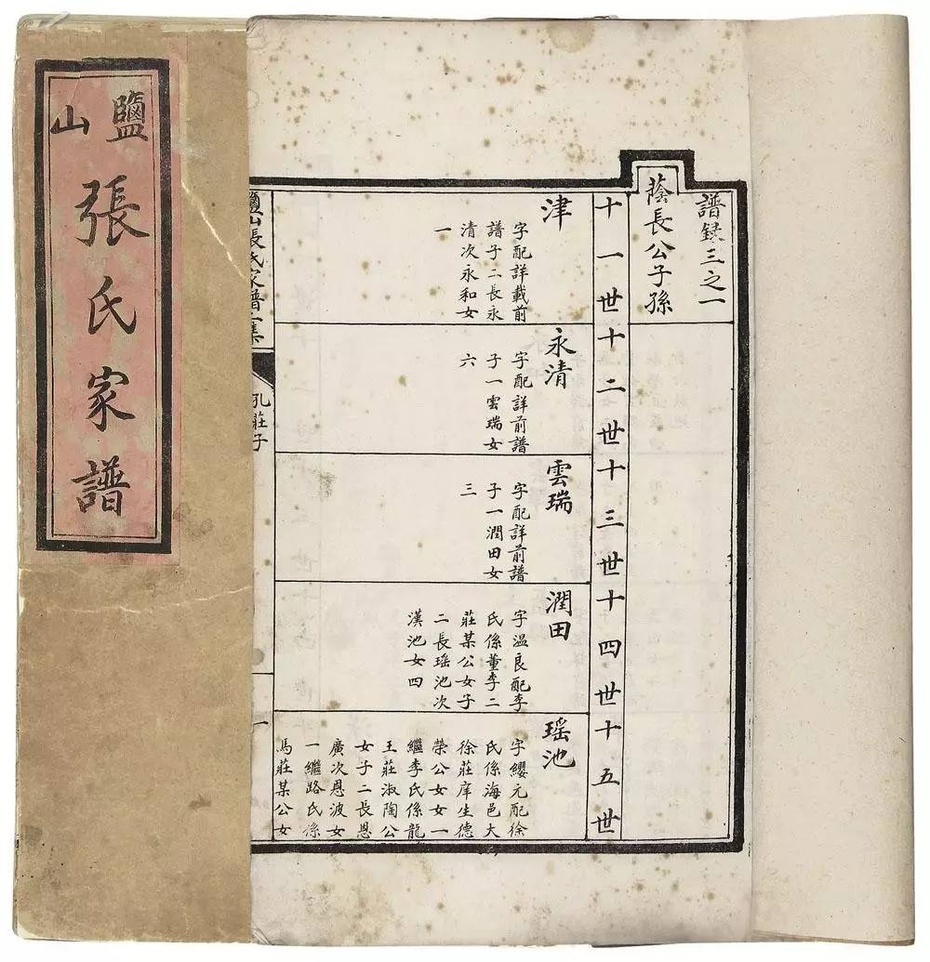 鹽山
張氏家譜
譜錄三之一
蔭長公子孫
十一世
十二世
十三世
十四世
十五世
津
字配詳載前
譜子二長永
清次永和女
一
永清
字配詳前譜
子一雲瑞女
六
雲瑞
字配詳前譜
子一潤田女
三
潤田
字温良配李
氏係董李二
莊某公女子
二長瑶池次
漢池女四
瑶池
字纓元配徐
氏係海邑大
徐莊庠生德
榮公女女一
繼李氏係龍
王莊淑陶公
女子二長恩
廣次恩波女
一繼路氏係
馬莊某公女
鹽山張氏家譜
孔莊子
一